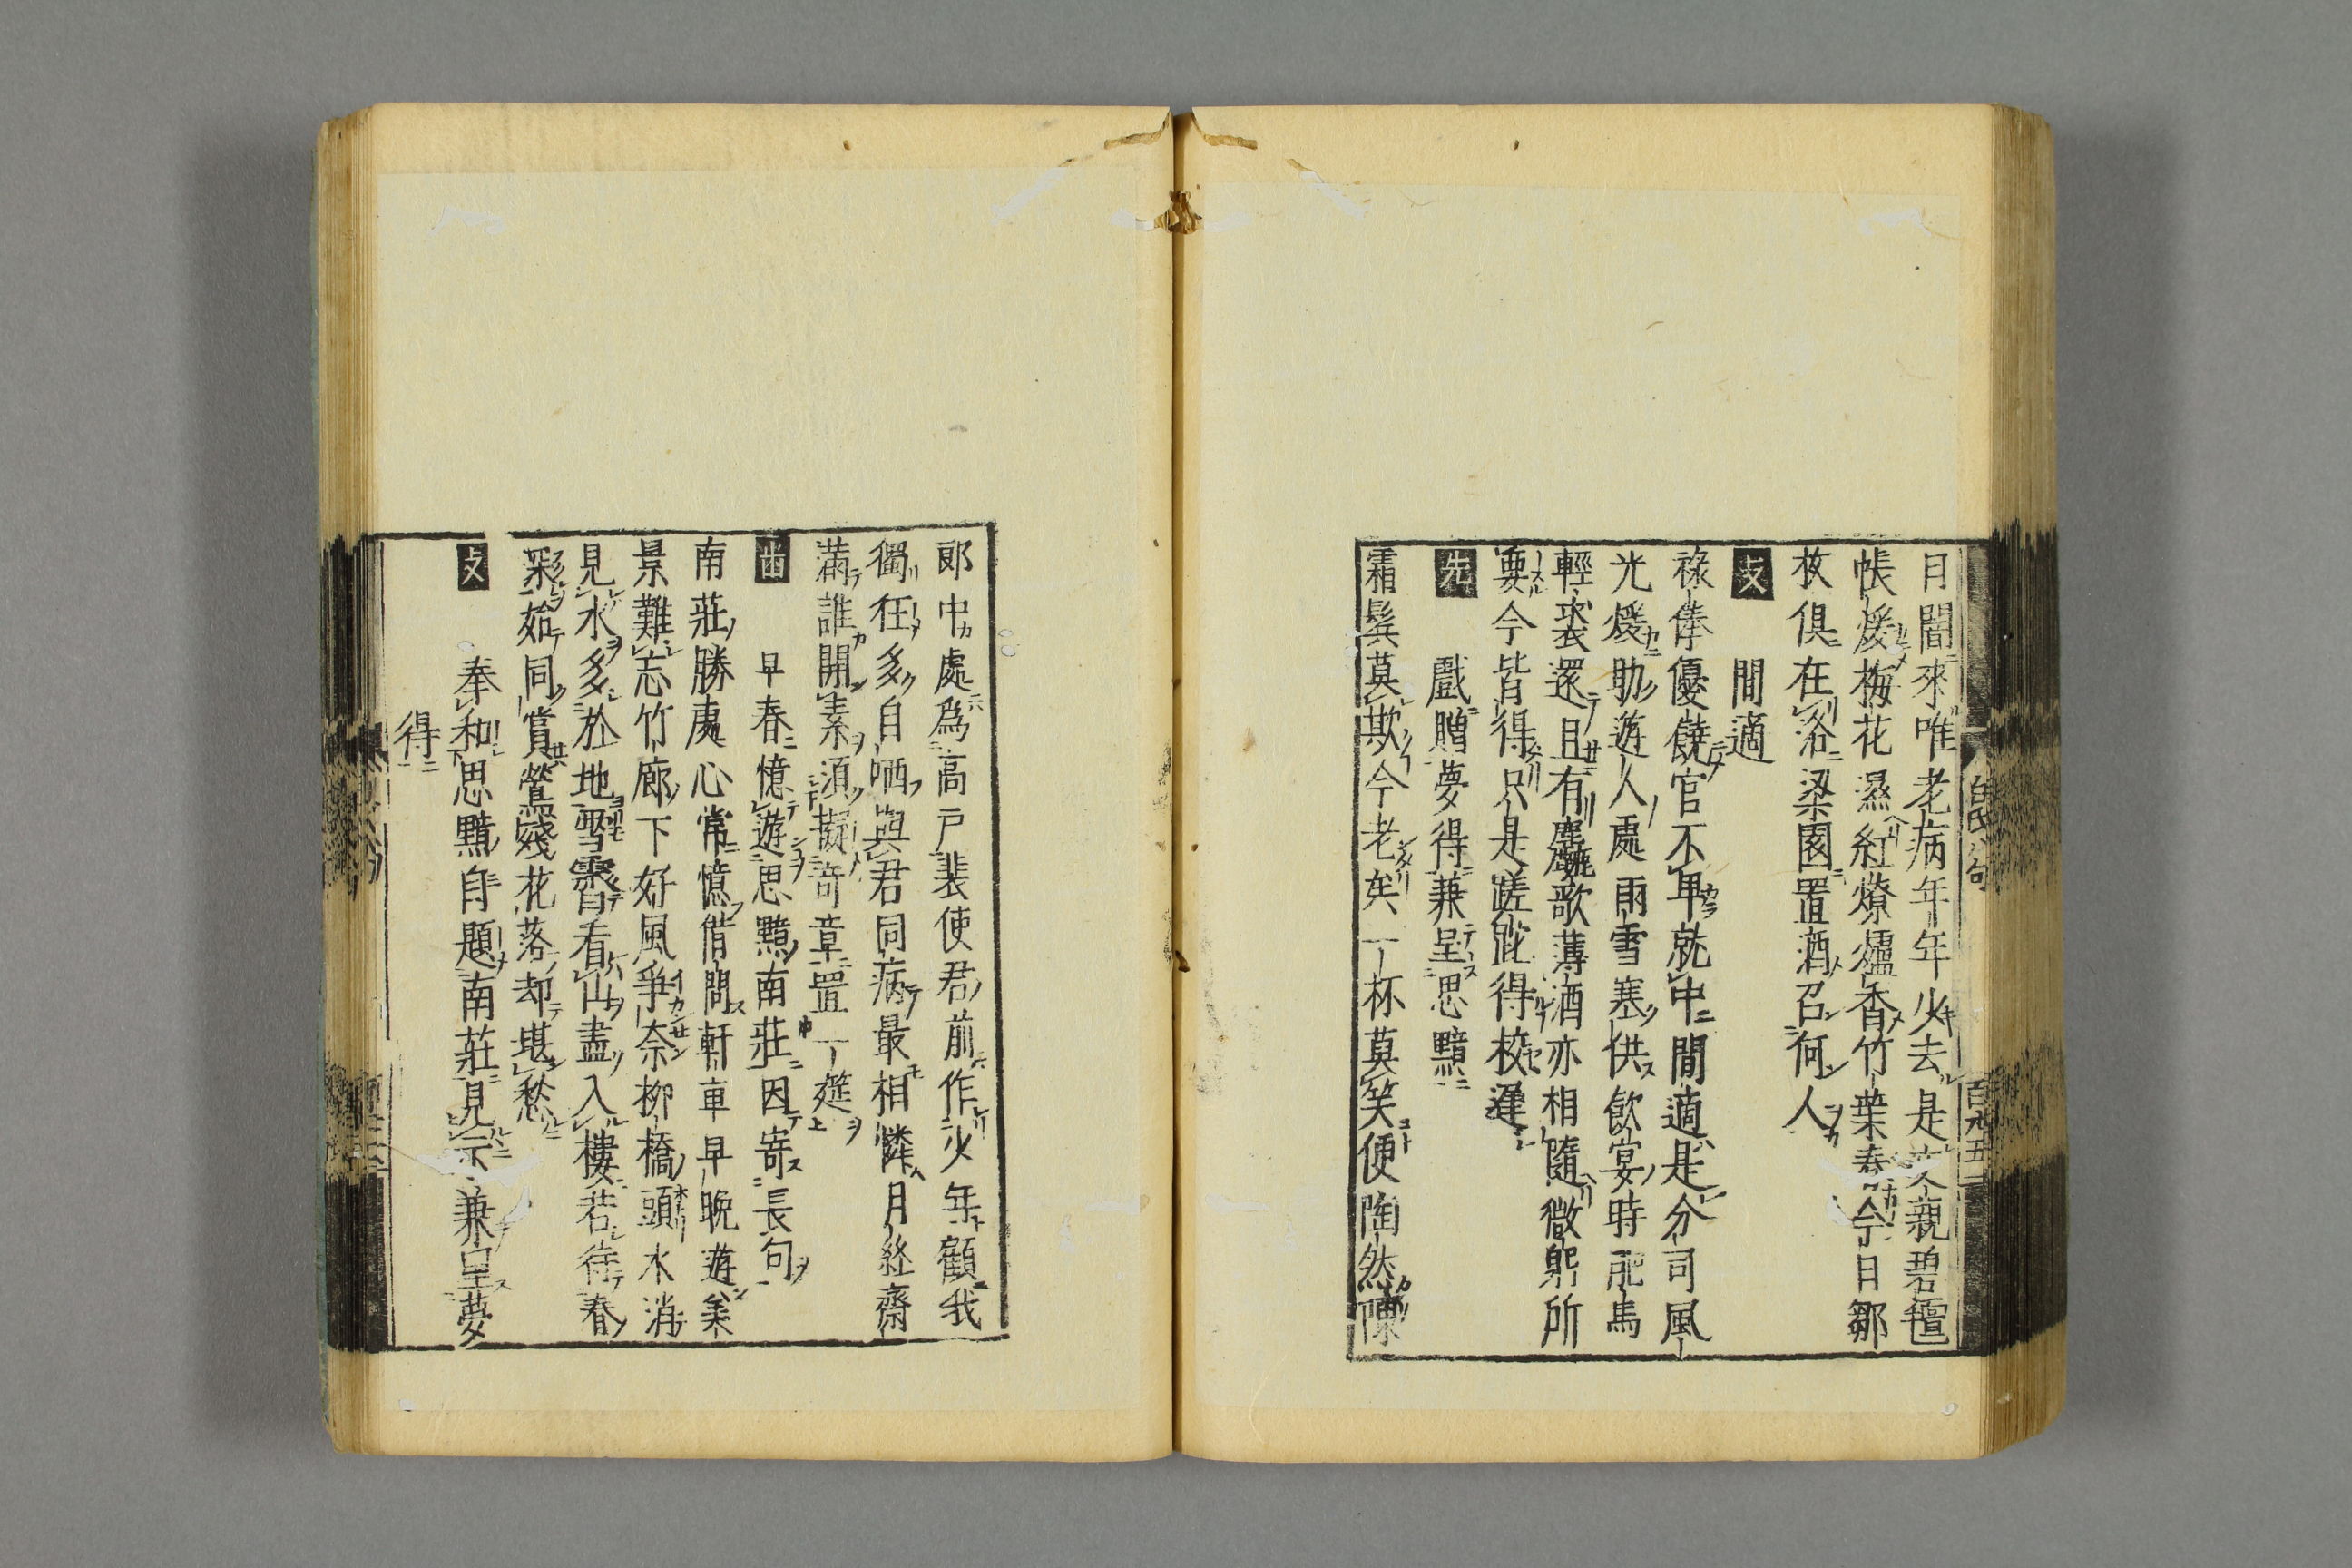 月閒來唯老病年年少去是交親碧氊
帳煖梅花濕紅燎爐香竹葉春今日鄒
枚俱在洛梁園置酒召何人
支 閒適
祿俸優饒官不卑就中閒適是分司風
光煖助遊人處雨雪寒供飲宴時肥馬
輕裘還且有麤歌薄酒亦相隨微躬所
要今皆得只是蹉跎得校遲
先 戲贈夢得兼呈思黯
霜鬢莫欺今老矣一杯莫笑便陶然陳
白氏八句
郎中處爲高戸裴使君前作少年顧我
獨狂多自哂與君同病最相憐月終齋
滿誰開素須擬奇章置一筵
早春憶遊思黯南莊因寄長句
南莊勝處心常憶借問軒車早晩遊美
景難忘竹廊下好風爭奈柳橋頭水消
見水多於地雪霽看山盡入樓若待春
深始同賞鶯殘花落却堪愁
支 奉和思黯自題南莊見示兼呈夢
得